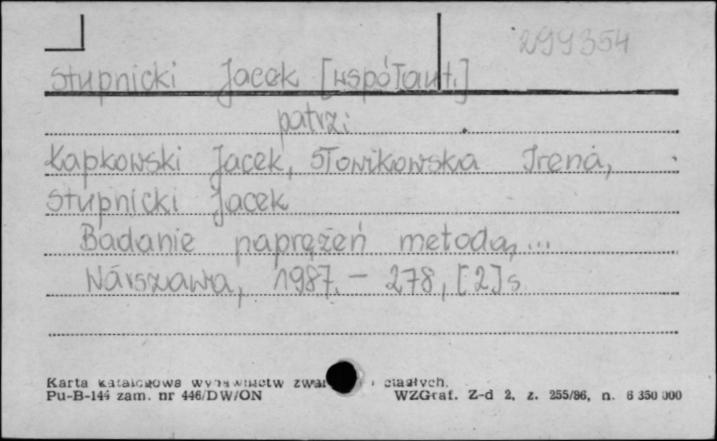 299354
Stupnicki Jacek [współaut.]
patrz:
Łapkowski Jacek, Słowikowska Irena,
Stupnicki Jacek
Badanie naprężeń metodą ...
Warszawa, 1987. – 278, [2] s
Karta katalogowa wydawnictw ciągłych.
Pu-B-144 zam. nr 446/DW/ON WZGraf. Z-d 2, z. 255/86, n. 6 350 000